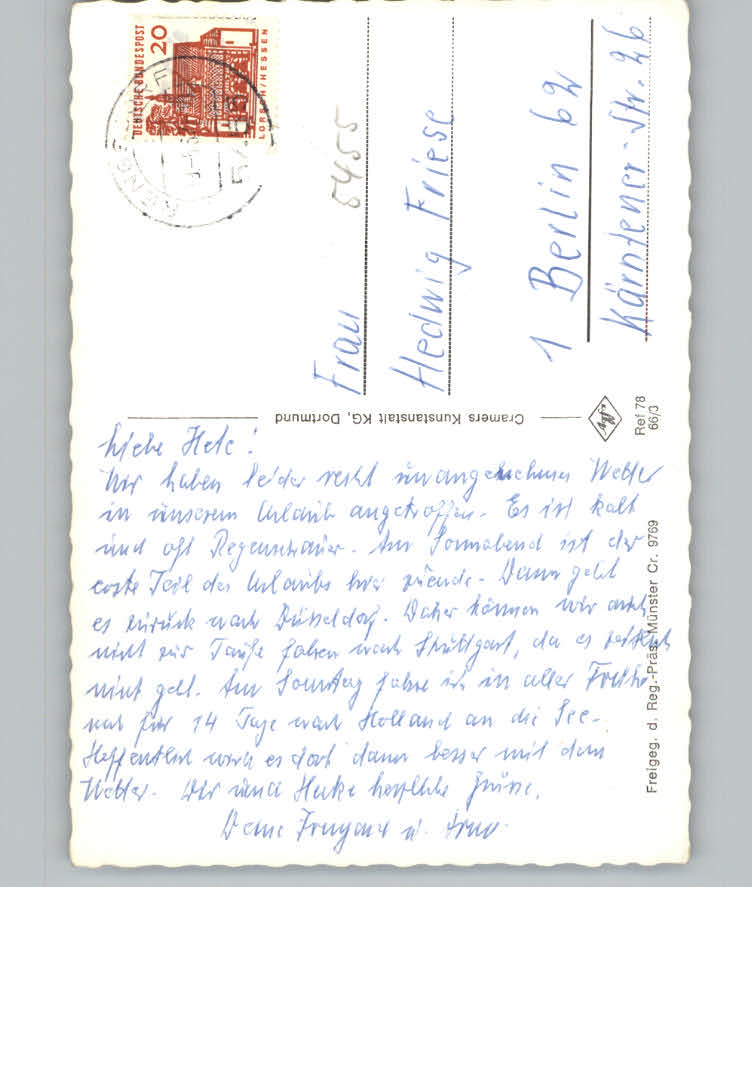 Liebe Hete!
Wir haben leider recht unangenehmes Wetter
in unserem Urlaub angetroffen. Es ist kalt
und oft Regenschauer. Am Sonnabend ist der
erste Teil des Urlaubs hier zuende. Dann geht
es zurück nach Düsseldorf. Daher können wir auch
nicht zur Taufe fahren nach Stuttgart, da es zeitlich
nicht geht. Am Sonntag fahre ich in aller Frühe
für 14 Tage nach Holland an die See.
Hoffentlich wird es dort dann besser mit dem
Wetter. Dir und herzliche Grüsse.
Deine Irmgard u.
DEUTSCHE BUNDESPOST
20
LORSCH HESSEN
5455
Frau
Hedwig Friese
1 Berlin 62
Kärntener-Str. 26
Cramers Kunstanstalt KG, Dortmund
Ref 78
66/3
Freigeg. d. Reg.-Präs. Münster Cr. 9769